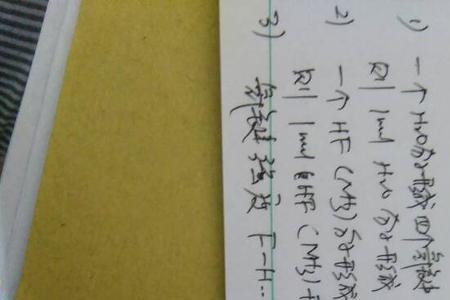 1) 一个H2O分子形成四个氢键
则1mol H2O分子形成
2) 一个HF(NH3)分子形成
则1mol HF(NH3)
3) 氢键强度 F-H…